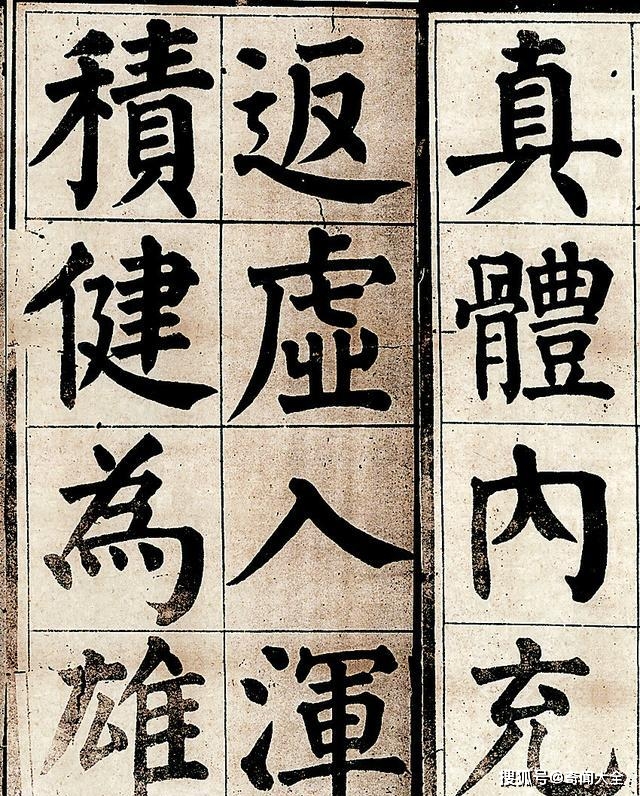 真體內充
返虛入渾
積健為雄
搜狐号@奇闻大全